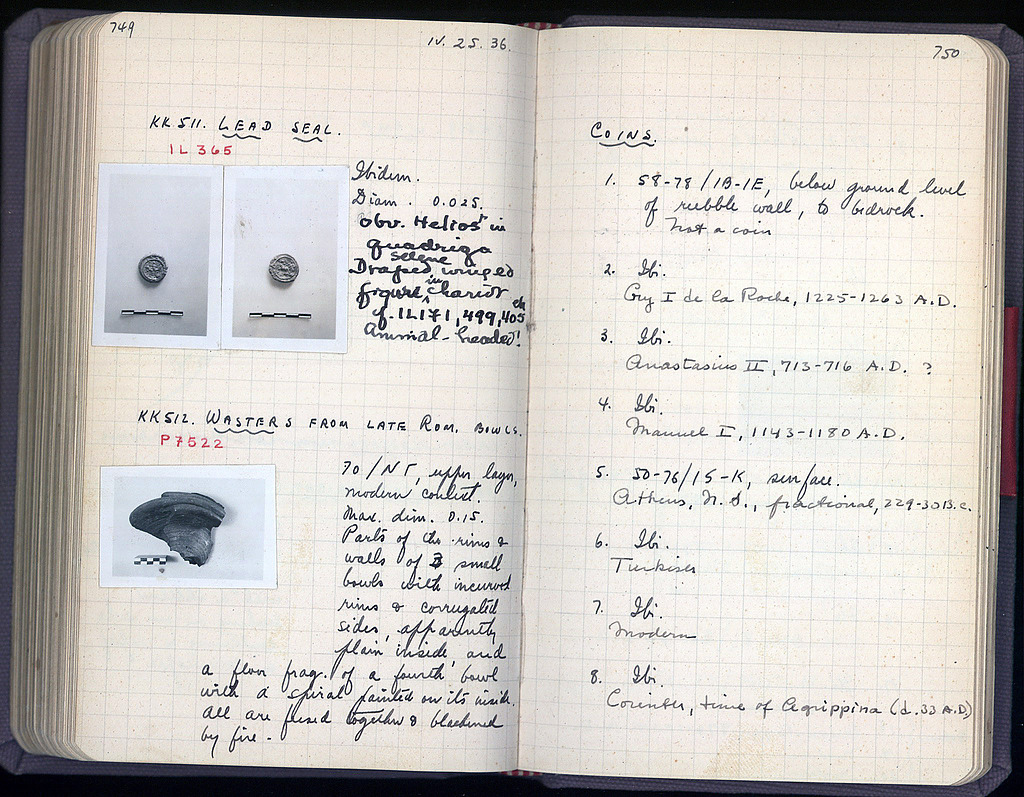 749
IV. 25. 36.
KK 511. LEAD SEAL.
IL 365
Ibidem.
Diam. 0.025.
obv. Helios in
quadriga
selene
Draped winged
figure in chariot
cf. IL171, 499, 405
Animal-headed!
KK 512. WASTERS FROM LATE ROM. BOWLS.
P 7522
70/ΝΓ, upper layer,
modern context.
Max. dim. 0.15.
Parts of the rims &
walls of 3 small
bowls with incurved
rims & corrugated
sides, apparently
plain inside, and
a floor frag. of a fourth bowl
with a spiral painted on its inside.
All are fused together & blackened
by fire.
750
COINS.
1. 58-78/1B-1E, below ground level
of rubble wall, to bedrock.
Not a coin
2. Ibi.
Guy I de la Roche, 1225-1263 A.D.
3. Ibi.
Anastasius II, 713-716 A.D. ?
4. Ibi.
Manuel I, 1143-1180 A.D.
5. 50-76/15-K, surface.
Athens, N.S., fractional, 229-30 B.C.
6. Ibi.
Turkish
7. Ibi.
Modern
8. Ibi.
Corinth, time of Agrippina (d. 33 A.D)